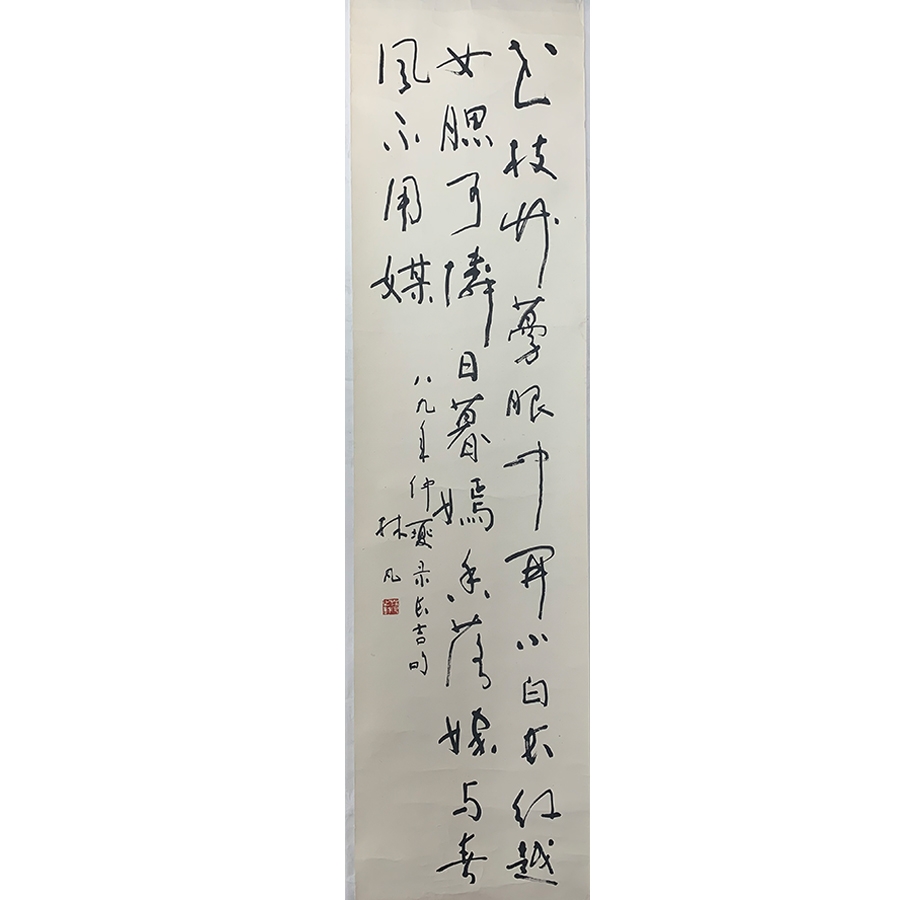 花枝草蔓眼中開小白長红越
女腮可憐日暮嫣香落嫁与春
风不用媒
八九年仲夏录长吉句
林凡